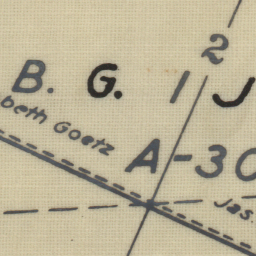 2
B. G. 1 J
beth Goetz
A-30
Jas.